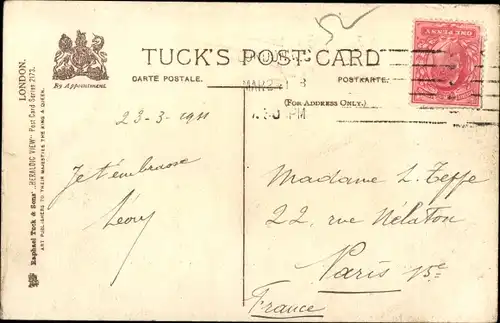 TUCK'S POST CARD
CARTE POSTALE.
POSTKARTE.
(FOR ADDRESS ONLY.)
By Appointment.
LONDON.
Raphael Tuck & Sons' "HERALDIC VIEW" Post Card Series 2172.
ART PUBLISHERS TO THEIR MAJESTIES THE KING & QUEEN.
ONE PENNY
23-3-1911
Je t'embrasse
Madame L. Teffe
22, rue Nélaton
Paris 15e
France